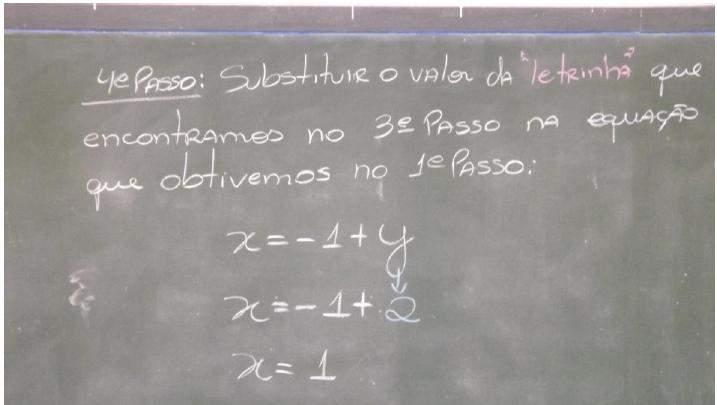 4º Passo: Substituir o valor da "letrinha" que
encontramos no 3º Passo na equação
que obtivemos no 1º Passo:
x = -1 + y
x = -1 + 2
x = 1